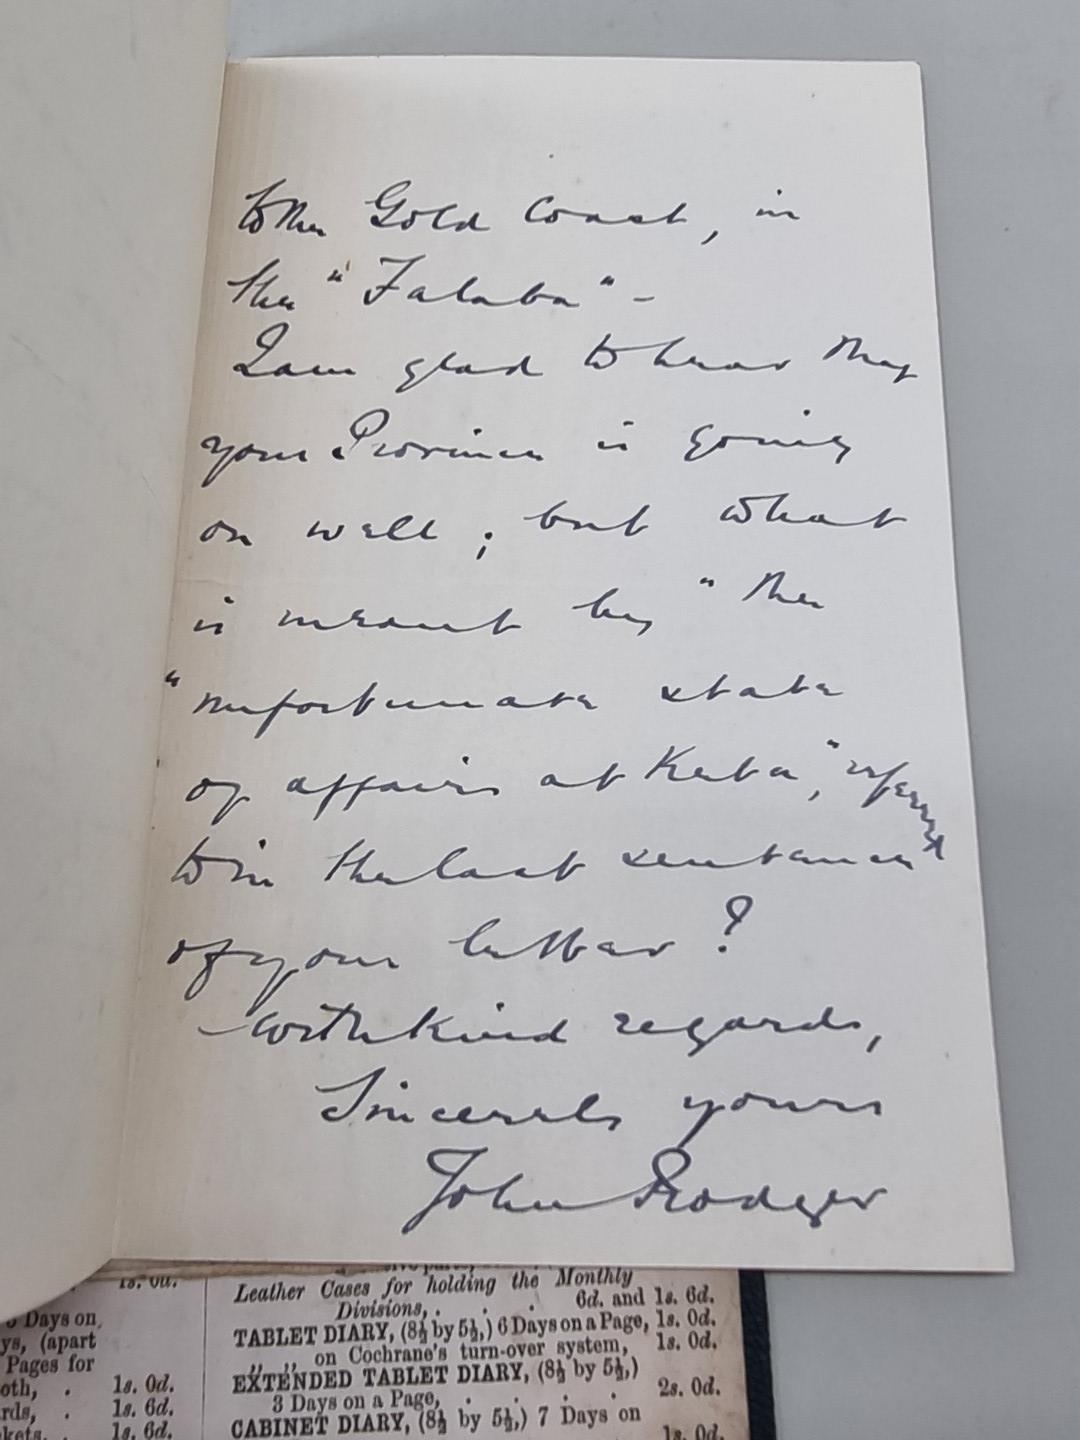 to the Gold Coast, in
the "Falaba" -
I am glad to hear that
your Province is going
on well; but what
is meant by "the
"unfortunate state
of affairs at Keta," referred
to in the last sentence
of your letter?
With kind regards,
Sincerely yours
John Rodger
1s. 0d.
Days on
ys, (apart
Pages for
oth, . 1s. 0d.
rds, . 1s. 6d.
kets, . 1s. 6d.
Leather Cases for holding the Monthly
Divisions, . . . 6d. and 1s. 6d.
TABLET DIARY, (8½ by 5½,) 6 Days on a Page, 1s. 0d.
„ „ on Cochrane's turn-over system, 1s. 0d.
EXTENDED TABLET DIARY, (8½ by 5½,)
3 Days on a Page, . . . . 2s. 0d.
CABINET DIARY, (8½ by 5½,) 7 Days on
1s. 0d.